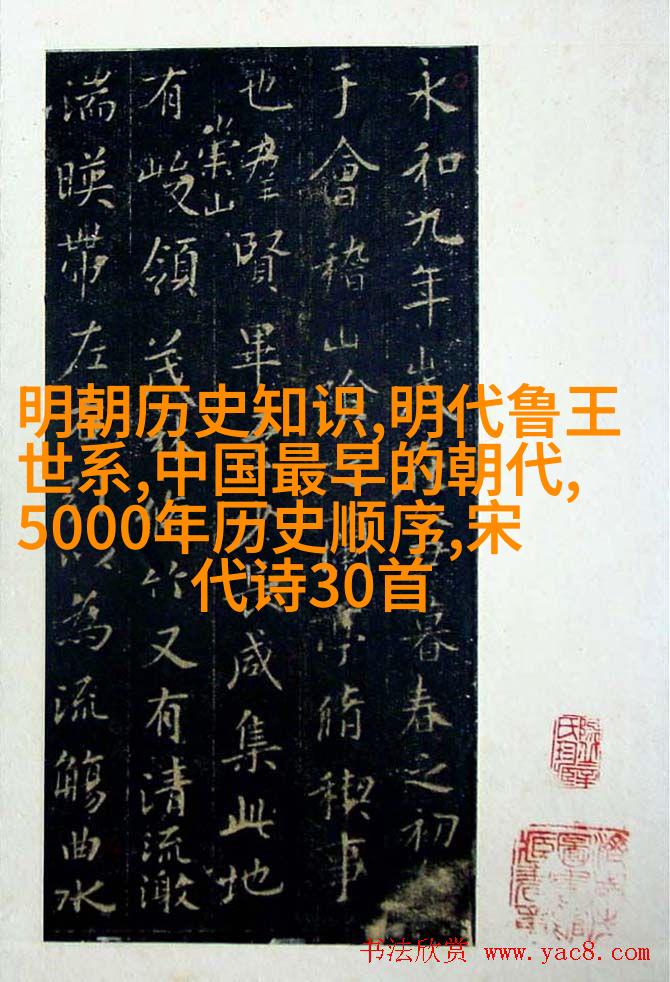 永和九年暮春之初
于會稽山陰亭脩禊事
也羣賢畢咸集此地
有崇山峻領茂林竹又有清流激
湍暎帶左為流觴曲水
明朝历史知识,明代鲁王
世系,中国最早的朝代,
5000年历史顺序,宋
代诗30首
书法欣赏 www.yac8.com